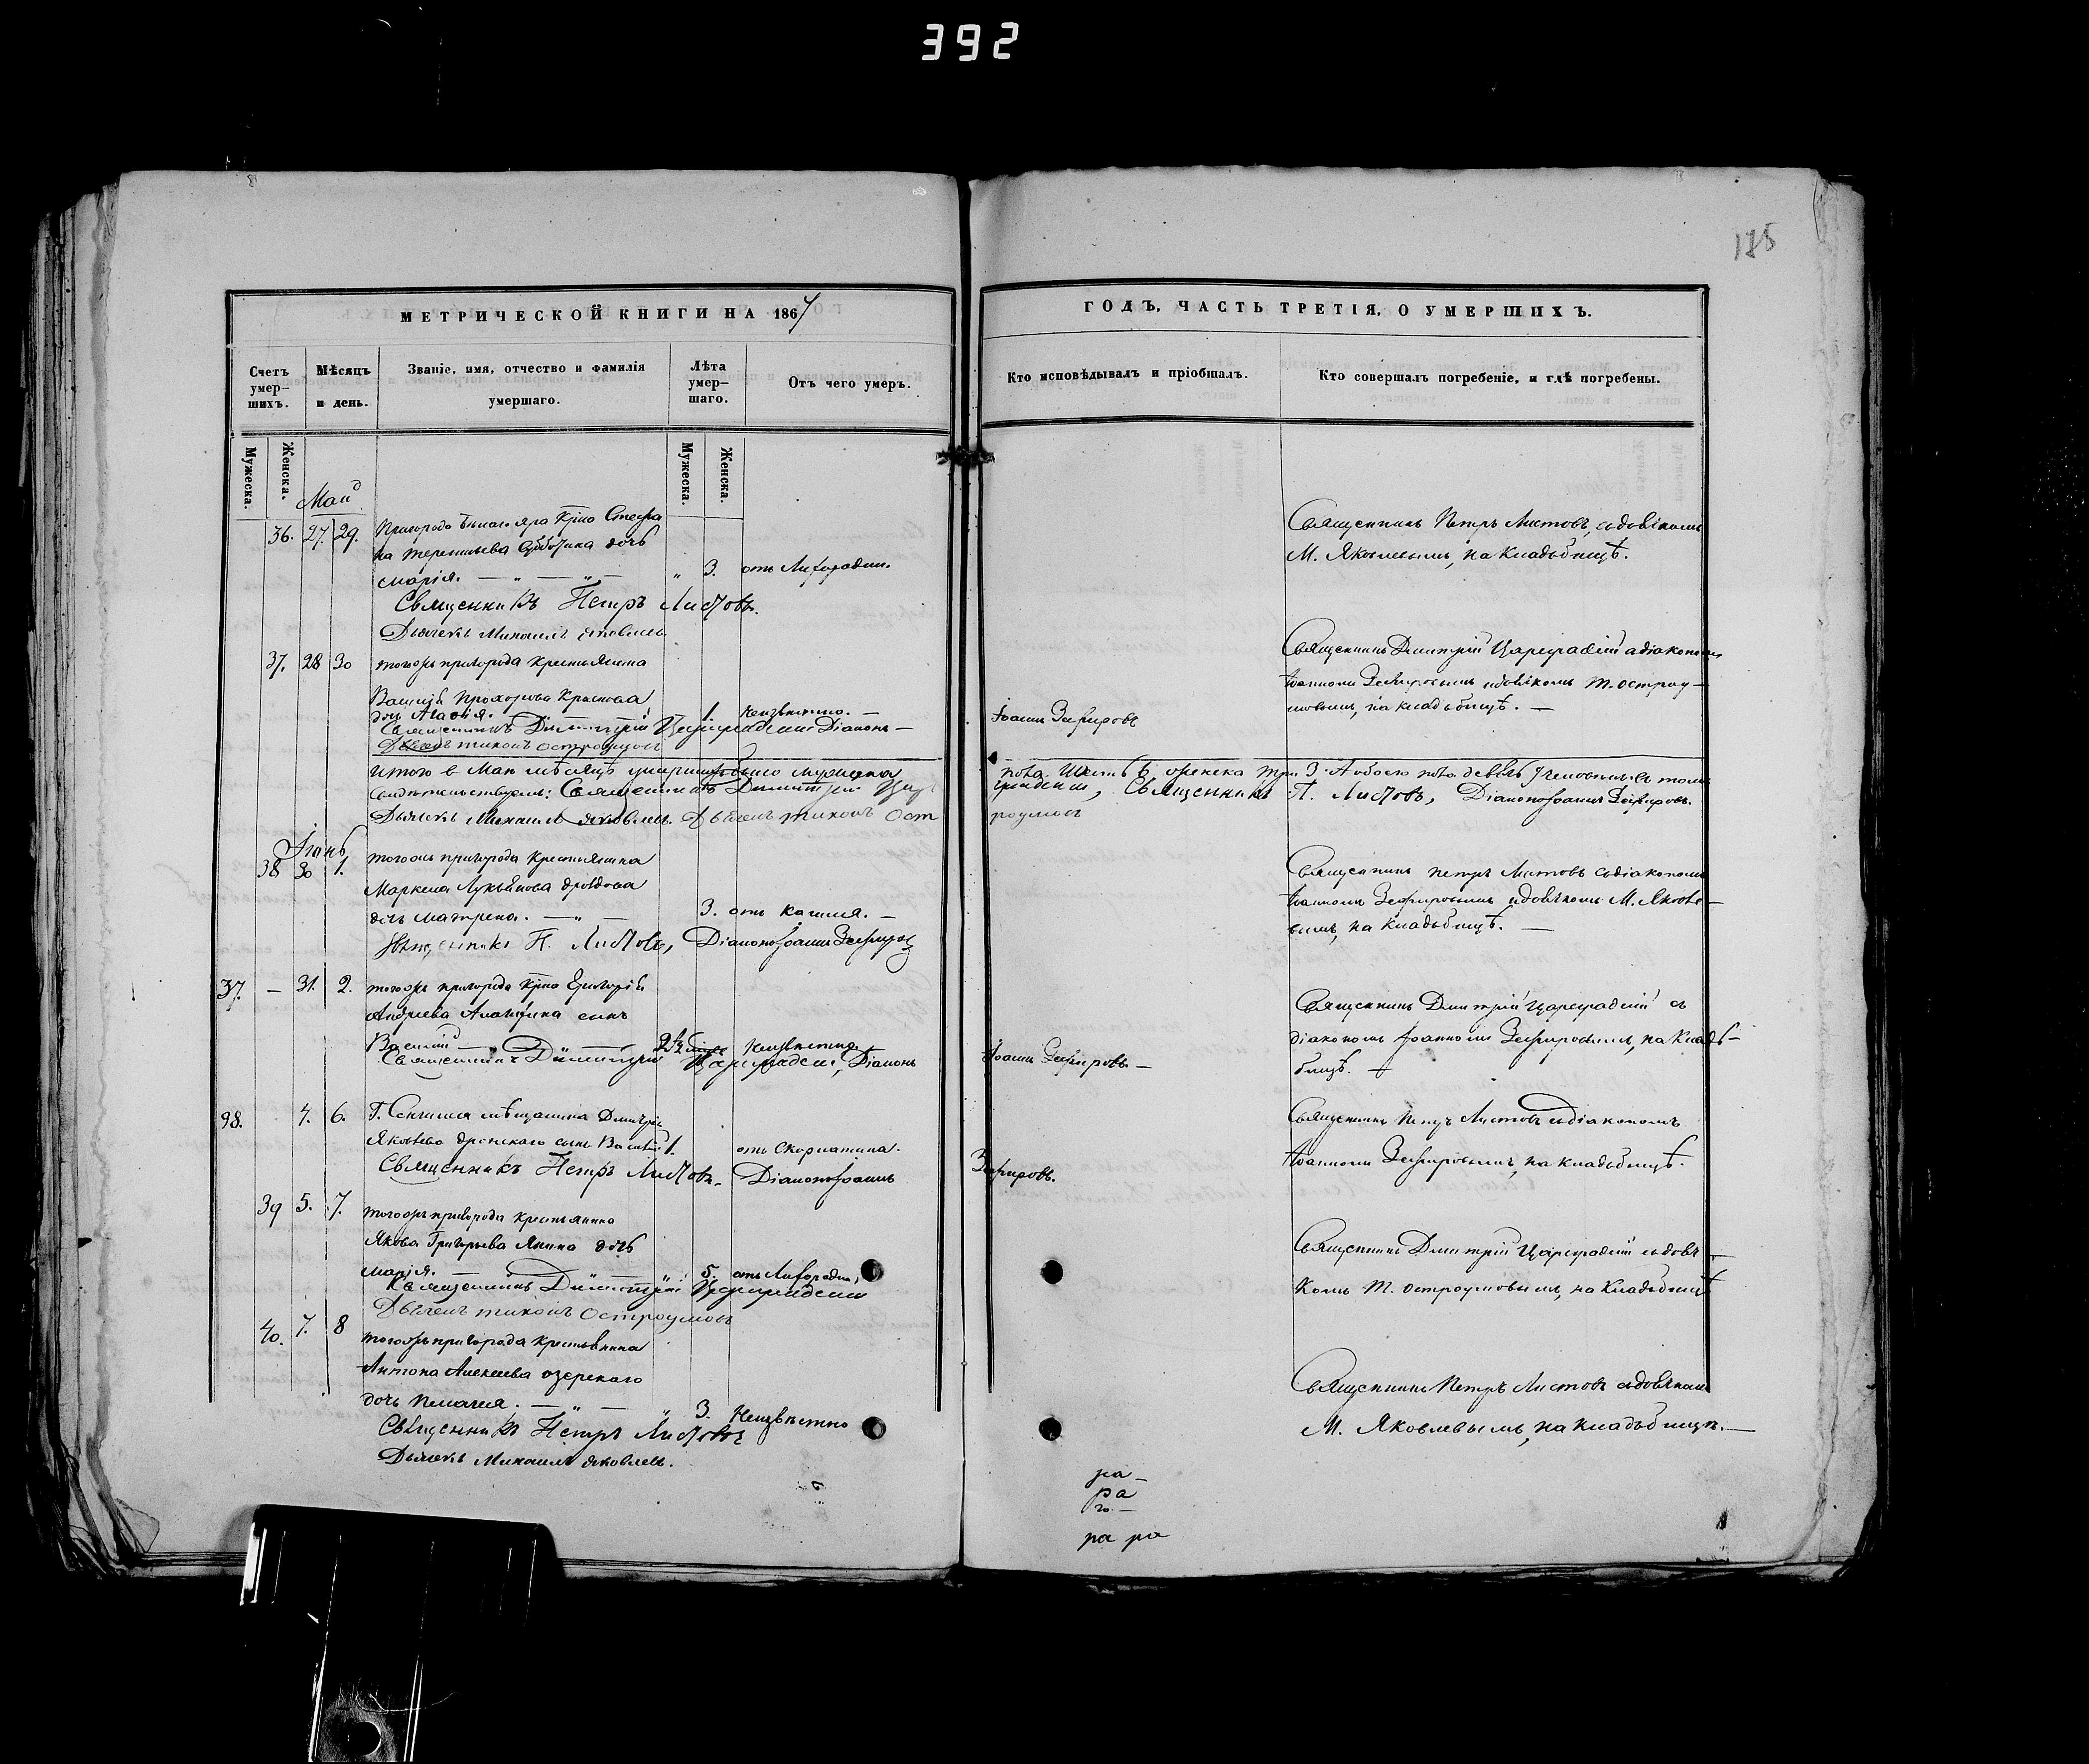 392
175
МЕТРИЧЕСКОЙ КНИГИ НА 1867
ГОДЪ, ЧАСТЬ ТРЕТІЯ, О УМЕРШИХЪ.
Счетъ умер-
шихъ.
Мѣсяцъ
и день.
Званіе, имя, отчество и фамилія
умершаго.
Лѣта
умер-
шаго.
Отъ чего умеръ.
Кто исповѣдывалъ и пріобщалъ.
Кто совершалъ погребеніе, и гдѣ погребены.
Мужеска.
Женска.
Мужеска.
Женска.
Май
36. 27. 29. Пригорода Бѣлаго яра Кр͞на Стефа
на Терентьева дочь
Марія. — „ — „ — „ 3. отъ Лихорадки.
Священникъ Петръ Листовъ, съ дьячкомъ
М. Яковлевымъ, на кладбищѣ.
Священникъ Петръ Листовъ.
Дьячекъ Михаилъ Яковлевъ
37. 28 30 тогожъ пригорода крестьянина
Василія Прохорова Краснова
дочь 1. неизвѣстно. —
Священникъ Димитрій Цареградскій Діаконъ — Іоаннъ Зефировъ
Дьячекъ Тихонъ Остроумовъ
Священникъ Дмитрій Цареградскій съ діакономъ
Іоанномъ Зефировымъ и дьячкомъ Т. Остроу-
мовымъ, на кладбищѣ. —
Итого в Маѣ мѣсяцѣ умершихъ было мужеска пола шесть 6 женска три 3. А обоего пола девять 9 человекъ в томъ
свидѣтельствуемъ: Священникъ Димитрій Царе градскій, Священникъ П. Листовъ, Діаконъ Іоаннъ Зефировъ.
Дьячекъ Михаилъ Яковлевъ. Дьячекъ Тихонъ Ост роумовъ
Іюнь
38 30 1. тогожъ пригорода Крестьянина
Маркела Лукьянова Дроздова
дочь Матрена. — „ — 3. отъ кашля. —
Священникъ П. Листовъ, Діаконъ Іоаннъ Зефировъ
Священникъ Петръ Листовъ съ діакономъ
Іоанномъ Зефировымъ и дьячкомъ М. Яковле-
вымъ, на кладбищѣ. —
37. — 31. 2. тогожъ пригорода Кр͞на Григорія
Андреева сынъ
Василій — „ — 2½ неизвѣстно
Священникъ Димитрій Цареградскій, Діаконъ Іоаннъ Зефировъ. —
Священникъ Дмитрій Цареградскій съ
діакономъ Іоанномъ Зефировымъ, на клад-
бищѣ. —
98. 4. 6. Г. Сенгилея мѣщанина Дмитрія
Яковлева сынъ Василій 1. отъ Скорлатина.
Священникъ Петръ Листовъ. Діаконъ Іоаннъ Зефировъ.
Священникъ Петръ Листовъ съ діакономъ
Іоанномъ Зефировымъ, на кладбищѣ.
39 5. 7. тогожъ пригорода крестьянина
Якова Григорьева Янина дочь
Марія. — „ 5. отъ Лихорадки,
Священникъ Димитрій Цареградскій
Дьячекъ Тихонъ Остроумовъ
Священникъ Дмитрій Цареградскій съ дьяч-
комъ Т. Остроумовымъ, на кладбищѣ
40. 7. 8 тогожъ пригорода крестьянина
Антона Алексеева Озерскаго
дочь Пелагея. — „ — „ 3. Неизвѣстно
Священникъ Петръ Листовъ
Дьячекъ Михаилъ Яковлевъ.
Священникъ Петръ Листовъ съ дьячкомъ
М. Яковлевымъ, на кладбищѣ. —
ра —
ра
го. —
ра ра